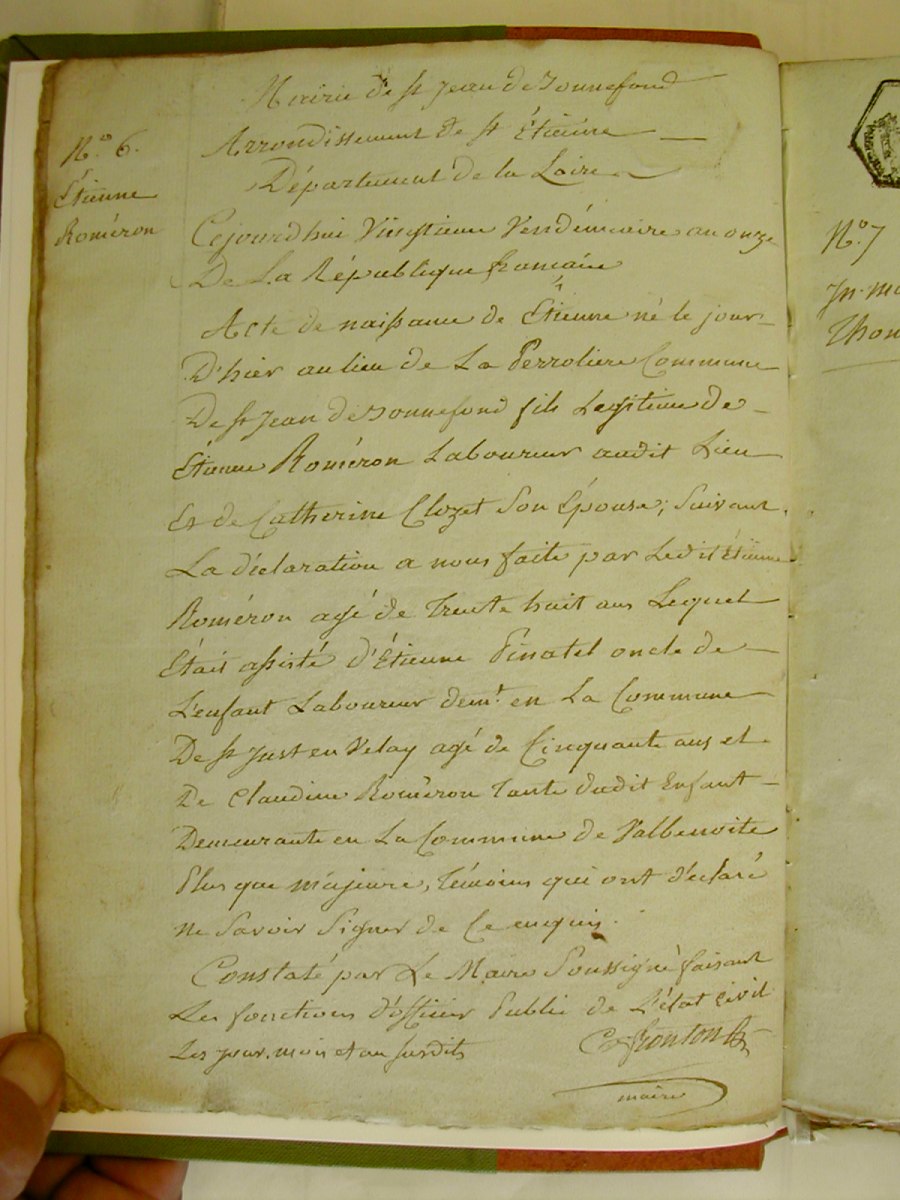 Mairie de st jean de Bonnefond
Arrondissement de st Étienne
Département de la Loire
N.º 6.
Étienne
Roméron
Cejourd'hui Vingtieme Vendémiaire an onze
De La République francaise
Acte de naissance de Étienne né le jour
D'hier au lieu de La Perroliere Commune
De st Jean de Bonnefond fils Legitime de
Étienne Roméron Laboureur audit Lieu
Et de Catherine Clozet Son Épouse; Suivant
La déclaration a nous faite par Ledit étienne
Roméron agé de Trente huit ans Lequel
Était assisté d'Étienne Pinatel oncle de
L'enfant Laboureur demt. en La Commune
De st just en Velay agé de Cinquante ans et
De Claudine Roméron Tante dudit Enfant
Demeurante en La Commune de Valbenoite
Plus que majeure, Témoins qui ont déclaré
ne Savoir Signer de Ce enquis.
Constaté par Le Maire Soussigné faisant
Les fonctions D'officier Public de L'état Civil
Les jour, mois et an susdits
maire
N.º 7